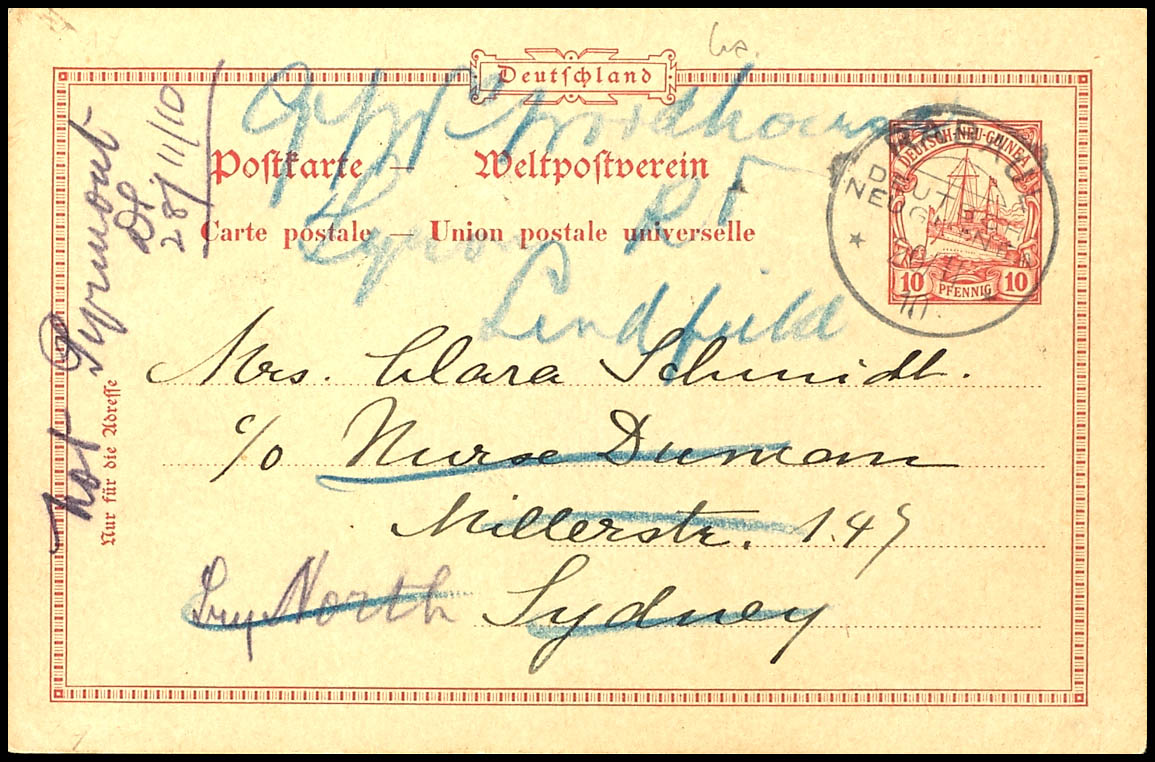 Deutschland
Postkarte — Weltpostverein
Carte postale — Union postale universelle
DEUTSCH-NEU-GUINEA
10 PFENNIG 10
10
Woodhouse
Rd
Lindfield
Mrs. Clara Schmidt.
c/o Nurse Duncan
Millerstr. 147
Try North Sydney
Nur für die Adresse
Not Pyrmont
28/11/10